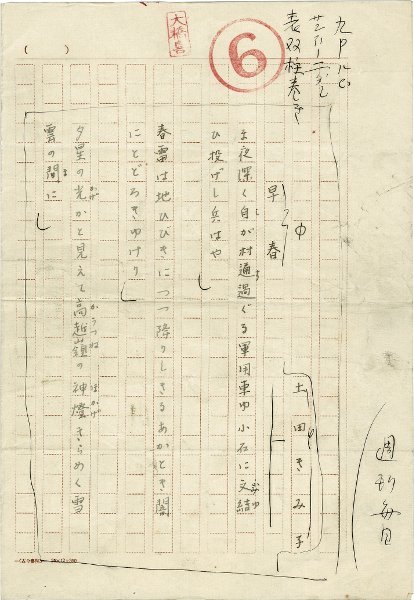 週刊毎日
6
早春
土田きみ子
ま夜深く自が村通過ぐる軍用車ゆ小石に文結
ひ投げし兵はや
春雷は地ひびきにつつ降りしきるあかとき闇
にとどろきゆけり
夕星の光かと見えて高越嶺の神燈きらめく雪
雲の間に
かげ
かうつね
ほかげ
ま